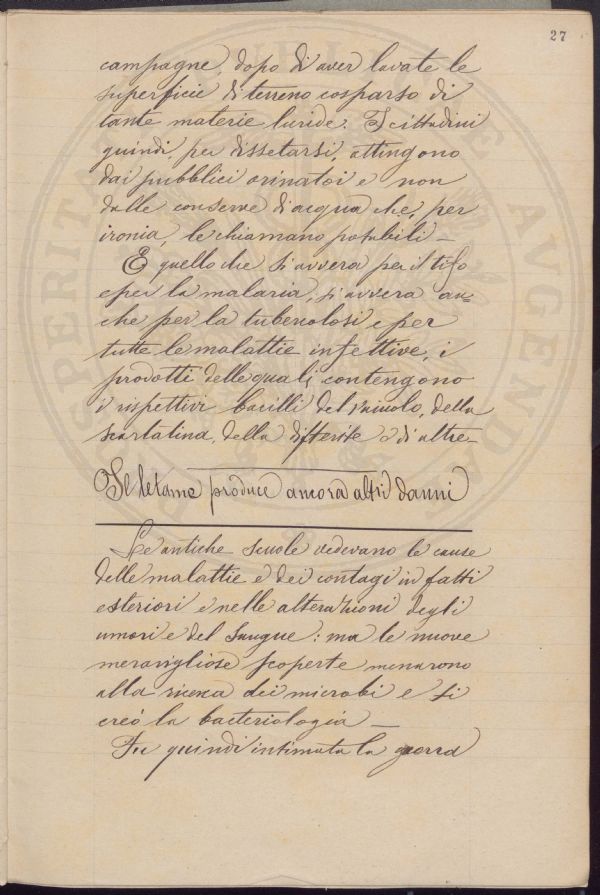 27
campagne, dopo di aver lavate le
superficie di terreno cosparso di
tante materie luride. I cittadini
quindi, per dissetarsi, attingono
dai pubblici orinatoi e non
dalle conserve di acqua che, per
ironia, le chiamano potabili —
E quello che si avvera per il tifo
e per la malaria, si avvera an=
che per la tubercolosi e per
tutte le malattie infettive, i
prodotti delle quali contengono
i rispettivi bacilli del vaiuolo, della
scarlatina, della difterite e di altre
Il letame produce ancora altri danni
Le antiche scuole vedevano le cause
delle malattie e dei contagi in fatti
esteriori e nelle alterazioni degli
umori e del sangue: ma le nuove
meravigliose scoperte menarono
alla ricerca dei microbi e si
creó la bacteriologia —
Fu quindi intimata la guerra
PROSPERITATI PUBLICAE AVGENDAE